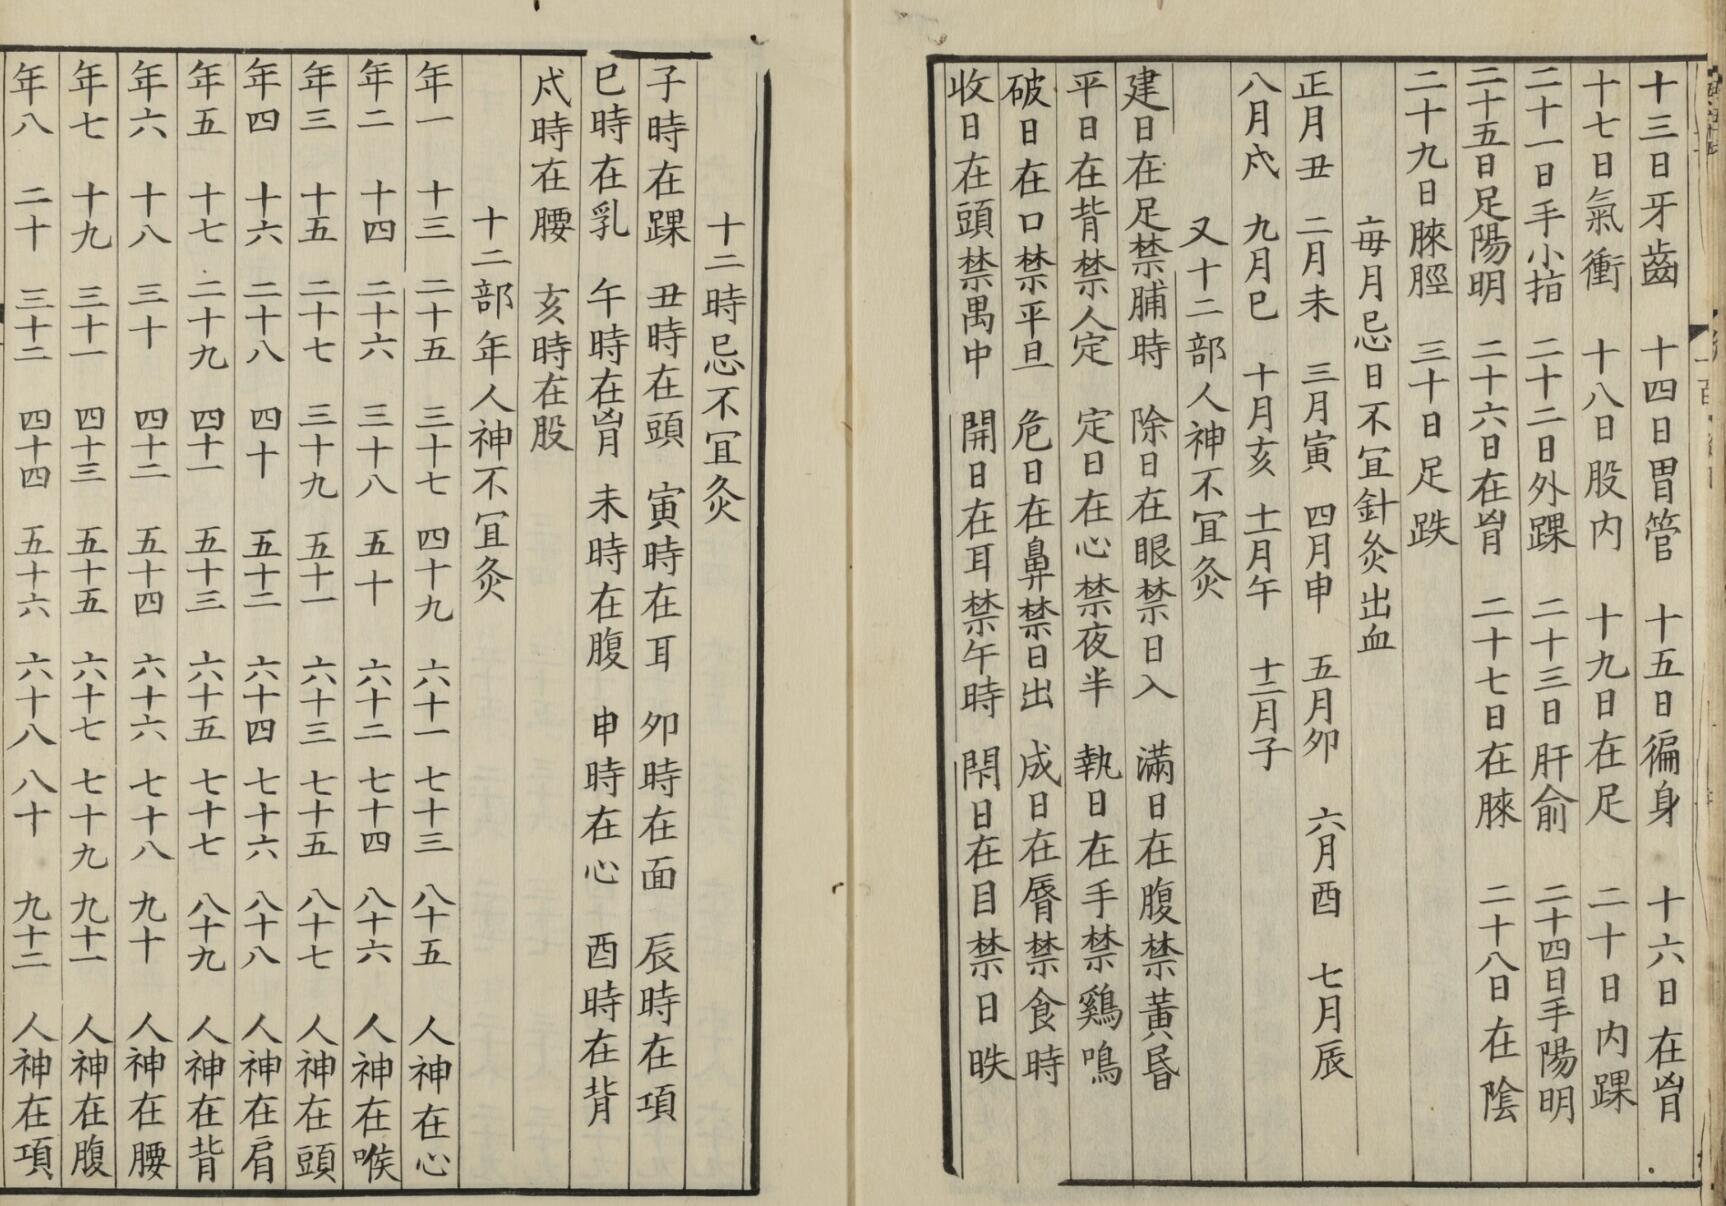 十三日牙齒　十四日胃管　十五日徧身　十六日在胷
十七日氣衝　十八日股内　十九日在足　二十日内踝
二十一日手小指　二十二日外踝　二十三日肝俞　二十四日手陽明
二十五日足陽明　二十六日在胷　二十七日在䐁　二十八日在陰
二十九日䐁脛　三十日足趺
每月忌日不冝針灸出血
正月丑　二月未　三月寅　四月申　五月卯　六月酉　七月辰
八月戌　九月巳　十月亥　十一月午　十二月子
又十二部人神不冝灸
建日在足禁脯時　除日在眼禁日入　滿日在腹禁黃昏
平日在背禁人定　定日在心禁夜半　執日在手禁鷄鳴
破日在口禁平旦　危日在鼻禁日出　成日在脣禁食時
收日在頭禁禺中　開日在耳禁午時　閇日在目禁日昳
十二時忌不冝灸
子時在踝　丑時在頭　寅時在耳　卯時在面　辰時在項
巳時在乳　午時在胷　未時在腹　申時在心　酉時在背
戌時在腰　亥時在股
十二部年人神不冝灸
年一　十三　二十五　三十七　四十九　六十一　七十三　八十五　人神在心
年二　十四　二十六　三十八　五十　六十二　七十四　八十六　人神在喉
年三　十五　二十七　三十九　五十一　六十三　七十五　八十七　人神在頭
年四　十六　二十八　四十　五十二　六十四　七十六　八十八　人神在肩
年五　十七　二十九　四十一　五十三　六十五　七十七　八十九　人神在背
年六　十八　三十　四十二　五十四　六十六　七十八　九十　人神在腰
年七　十九　三十一　四十三　五十五　六十七　七十九　九十一　人神在腹
年八　二十　三十二　四十四　五十六　六十八　八十　九十二　人神在項